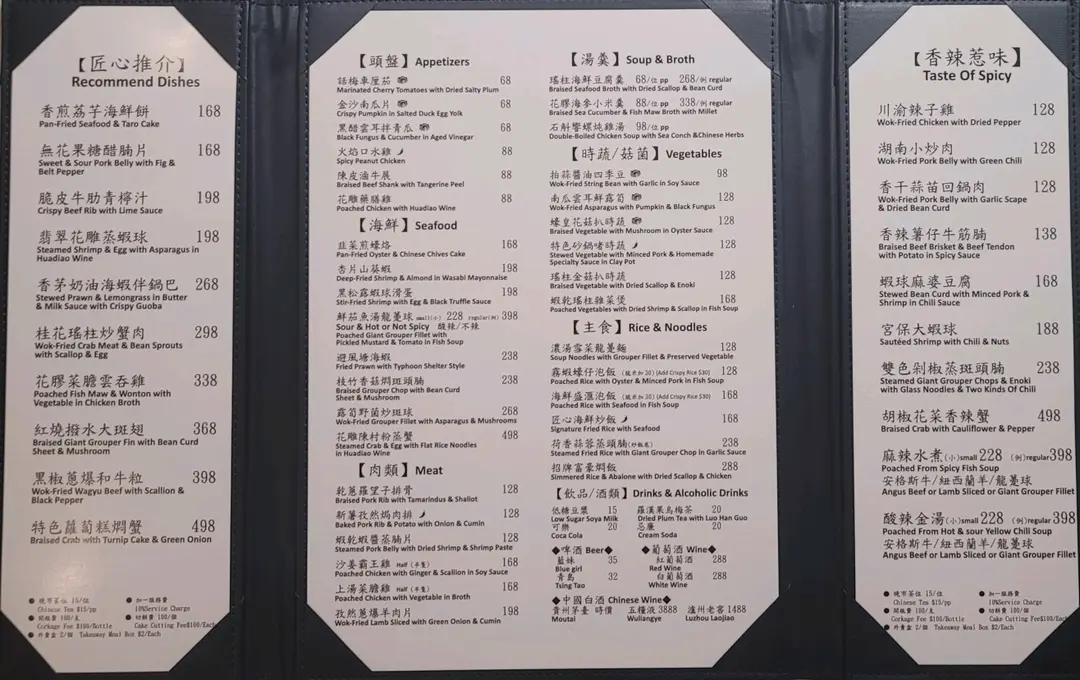 【匠心推介】
Recommend Dishes
香煎荔芋海鮮餅 168
Pan-Fried Seafood & Taro Cake
無花果糖醋腩片 168
Sweet & Sour Pork Belly with Fig &
Belt Pepper
脆皮牛肋青檸汁 198
Crispy Beef Rib with Lime Sauce
翡翠花雕蒸蝦球 198
Steamed Shrimp & Egg with Asparagus in
Huadiao Wine
香茅奶油海蝦伴鍋巴 268
Stewed Prawn & Lemongrass in Butter
& Milk Sauce with Crispy Guoba
桂花瑤柱炒蟹肉 298
Wok-Fried Crab Meat & Bean Sprouts
with Scallop & Egg
花膠菜膽雲吞雞 338
Poached Fish Maw & Wonton with
Vegetable in Chicken Broth
紅燒撥水大斑翅 368
Braised Giant Grouper Fin with Bean Curd
Sheet & Mushroom
黑椒蔥爆和牛粒 398
Wok-Fried Wagyu Beef with Scallion &
Black Pepper
特色蘿蔔糕燜蟹 498
Braised Crab with Turnip Cake & Green Onion
● 晚市茶位 15/位
Chinese Tea $15/pp
● 開瓶費 100/支
Corkage Fee $100/Bottle
● 外賣盒 2/個 Takeaway Meal Box $2/Each
● 加一服務費
10%Service Charge
● 切餅費 100/個
Cake Cutting Fee$100/Each
【頭盤】Appetizers
話梅車厘茄 68
Marinated Cherry Tomatoes with Dried Salty Plum
金沙南瓜片 68
Crispy Pumpkin in Salted Duck Egg Yolk
黑醋雲耳拌青瓜 68
Black Fungus & Cucumber in Aged Vinegar
火焰口水雞 88
Spicy Peanut Chicken
陳皮滷牛展 88
Braised Beef Shank with Tangerine Peel
花雕藥膳雞 88
Poached Chicken with Huadiao Wine
【海鮮】Seafood
韭菜煎蠔烙 168
Pan-Fried Oyster & Chinese Chives Cake
杏片山葵蝦 198
Deep-Fried Shrimp & Almond in Wasabi Mayonnaise
黑松露蝦球滑蛋 198
Stir-Fried Shrimp with Egg & Black Truffle Sauce
鮮茄魚湯龍躉球 small(小) 228 regular(例) 398
Sour & Hot or Not Spicy 酸辣/不辣
Poached Giant Grouper Fillet with
Pickled Mustard & Tomato in Fish Soup
避風塘海蝦 238
Fried Prawn with Typhoon Shelter Style
枝竹香菇燜斑頭腩 238
Braised Grouper Chop with Bean Curd
Sheet & Mushroom
露筍野菌炒斑球 268
Wok-Fried Grouper Fillet with Asparagus & Mushrooms
花雕陳村粉蒸蟹 498
Steamed Crab & Egg with Flat Rice Noodles
in Huadiao Wine
【肉類】Meat
乾蔥羅望子排骨 128
Braised Pork Rib with Tamarindus & Shallot
新薯孜然焗肉排 128
Baked Pork Rib & Potato with Onion & Cumin
蝦乾蝦醬蒸腩片 128
Steamed Pork Belly with Dried Shrimp & Shrimp Paste
沙姜霸王雞 Half (半隻) 168
Poached Chicken with Ginger & Scallion in Soy Sauce
上湯菜膽雞 Half (半隻) 168
Poached Chicken with Vegetable in Broth
孜然蔥爆羊肉片 198
Wok-Fried Lamb Sliced with Green Onion & Cumin
【湯羹】Soup & Broth
瑤柱海鮮豆腐羹 68/位 pp 268/例 regular
Braised Seafood Broth with Dried Scallop & Bean Curd
花膠海參小米羹 88/位 pp 338/例 regular
Braised Sea Cucumber & Fish Maw Broth with Millet
石斛響螺燉雞湯 98/位 pp
Double-Boiled Chicken Soup with Sea Conch &Chinese Herbs
【時蔬/菇菌】Vegetables
拍蒜醬油四季豆 98
Wok-Fried String Bean with Garlic in Soy Sauce
南瓜雲耳鮮露筍 128
Wok-Fried Asparagus with Pumpkin & Black Fungus
蠔皇花菇扒時蔬 128
Braised Vegetable with Mushroom in Oyster Sauce
特色砂鍋啫時蔬 128
Stewed Vegetable with Minced Pork & Homemade
Specialty Sauce in Clay Pot
瑤柱金菇扒時蔬 128
Braised Vegetable with Dried Scallop & Enoki
蝦乾瑤柱雜菜煲 168
Poached Vegetables with Dried Shrimp & Scallop in Fish Soup
【主食】Rice & Noodles
濃湯雪菜龍躉麵 128
Soup Noodles with Grouper Fillet & Preserved Vegetable
霧蝦蠔仔泡飯 (脆米加30) (Add Crispy Rice $30) 128
Poached Rice with Oyster & Minced Pork in Fish Soup
海鮮盛滙泡飯 (脆米加30) (Add Crispy Rice $30) 168
Poached Rice with Seafood in Fish Soup
匠心海鮮炒飯 168
Signature Fried Rice with Seafood
荷香蒜蓉蒸頭腩(炒飯底) 238
Steamed Fried Rice with Giant Grouper Chop in Garlic Sauce
招牌富豪燜飯 288
Simmered Rice & Abalone with Dried Scallop & Chicken
【飲品/酒類】Drinks & Alcoholic Drinks
低糖豆漿 15 羅漢果烏梅茶 20
Low Sugar Soya Milk Dried Plum Tea with Luo Han Guo
可樂 20 忌廉 20
Coca Cola Cream Soda
◆啤酒 Beer◆ ◆葡萄酒 Wine◆
藍妹 35 紅葡萄酒 288
Blue girl Red Wine
青島 32 白葡萄酒 288
Tsing Tao White Wine
◆中國白酒 Chinese Wine◆
貴州茅臺 時價 五糧液 3888 瀘州老窖 1488
Moutai Wuliangye Luzhou Laojiao
【香辣惹味】
Taste Of Spicy
川渝辣子雞 128
Wok-Fried Chicken with Dried Pepper
湖南小炒肉 128
Wok-Fried Pork Belly with Green Chili
香干蒜苗回鍋肉 128
Wok-Fried Pork Belly with Garlic Scape
& Dried Bean Curd
香辣薯仔牛筋腩 138
Braised Beef Brisket & Beef Tendon
with Potato in Spicy Sauce
蝦球麻婆豆腐 168
Stewed Bean Curd with Minced Pork &
Shrimp in Chili Sauce
宮保大蝦球 188
Sautéed Shrimp with Chili & Nuts
雙色剁椒蒸斑頭腩 238
Steamed Giant Grouper Chops & Enoki
with Glass Noodles & Two Kinds Of Chili
胡椒花菜香辣蟹 498
Braised Crab with Cauliflower & Pepper
麻辣水煮(小)small 228 (例)regular 398
Poached From Spicy Fish Soup
安格斯牛/紐西蘭羊/龍躉球
Angus Beef or Lamb Sliced or Giant Grouper Fillet
酸辣金湯(小)small 228 (例)regular 398
Poached From Hot & sour Yellow Chili Soup
安格斯牛/紐西蘭羊/龍躉球
Angus Beef or Lamb Sliced or Giant Grouper Fillet
● 晚市茶位 15/位
Chinese Tea $15/pp
● 開瓶費 100/支
Corkage Fee $100/Bottle
● 外賣盒 2/個 Takeaway Meal Box $2/Each
● 加一服務費
10%Service Charge
● 切餅費 100/個
Cake Cutting Fee$100/Each